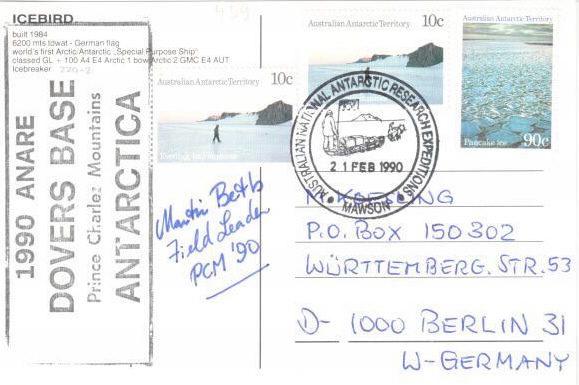 459
ICEBIRD
built 1984
6200 mts tdwat - German flag
world's first Arctic/Antarctic „Special Purpose Ship"
classed GL + 100 A4 E4 Arctic 1 bow Arctic 2 GMC E4 AUT
Icebreaker 220-2
1990 ANARE
DOVERS BASE
Prince Charlez Mountains
ANTARCTICA
Australian Antarctic Territory 10c
Australian Antarctic Territory 10c
Australian Antarctic Territory
Pancake Ice 90c
AUSTRALIAN NATIONAL ANTARCTIC RESEARCH EXPEDITIONS
21 FEB 1990
MAWSON
Martin Betts
Field Leader
PCM '90
P.O. BOX 150302
WÜRTTEMBERG. STR. 53
D- 1000 BERLIN 31
W-GERMANY